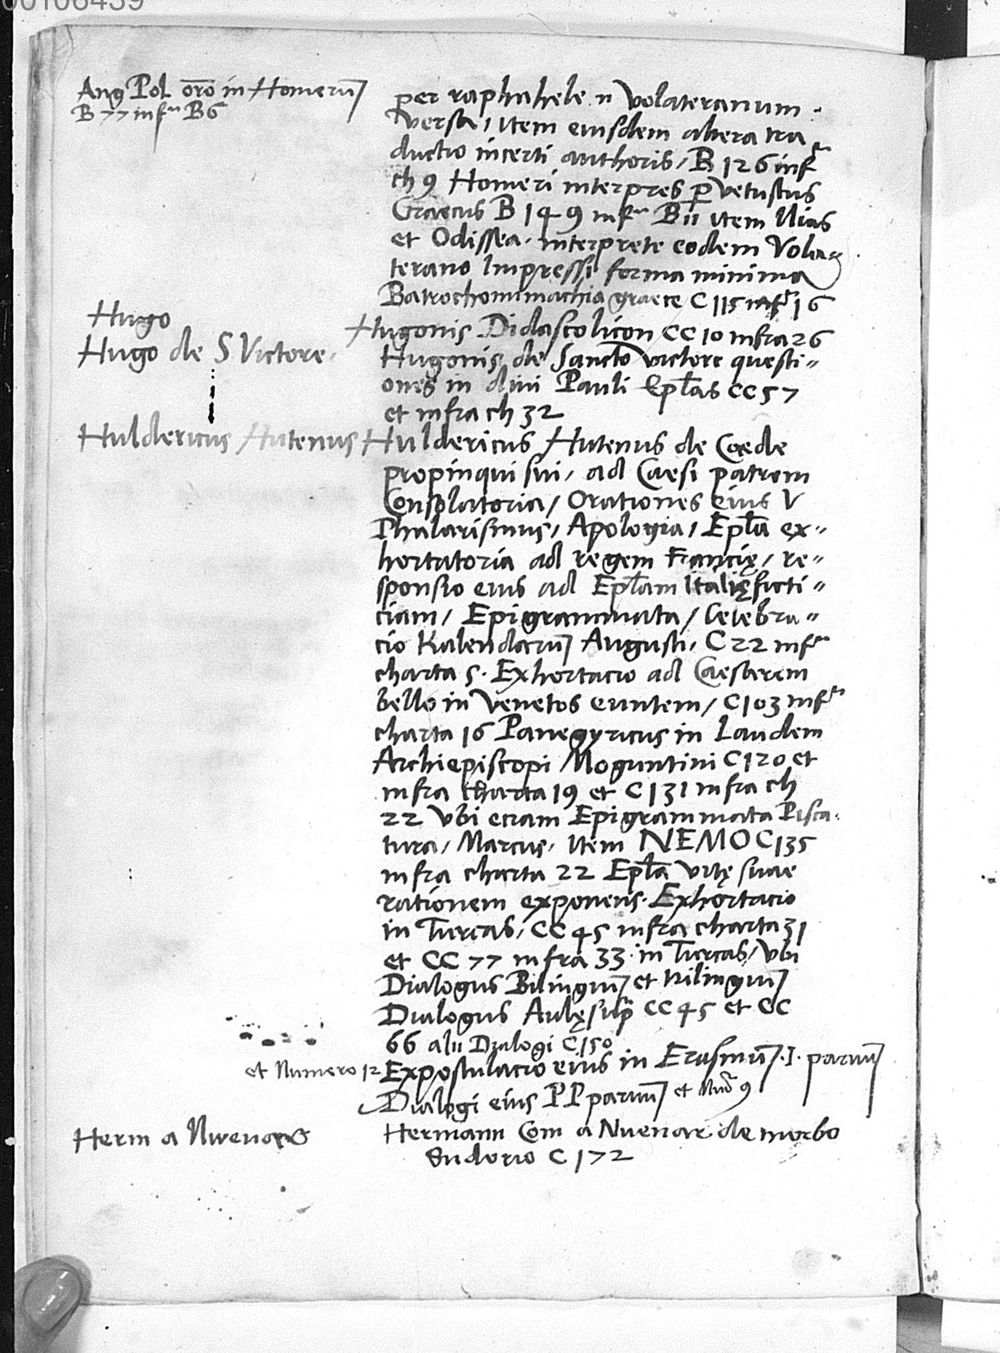 00106439
Ang Pol oro in Homerum
B 77 infra B6
per raphahele n volateranum
versa, item eiusdem altera tra
ductio incerti authoris, B 126 infra
ch 9 Homeri interpres per vetustus
Graecus B 149 infra Bii item Ilias
et Odissea, interprete eodem Vola=
terano Impressi forma minima
Batrochomimachia graece C 115 infra 16
Hugo
Hugonis Didascolicon CC 10 infra 26
Hugo de S Victore
Hugonis de Sancto victore questi=
ones in divi Pauli Eplas CC 57
et infra ch 32
Huldericus Hutenus
Huldericus Hutenus de Caede
propinqui sui, ad Caesi patrem
Consolatoria, Orationes eius V
Phalarismus, Apologia, Epla ex=
hortatoria ad regem Francię, re=
sponsio eius ad Eplam Italię ficti=
ciam, Epigrammata, Celebra=
cio Kalendarum Augusti, C 22 infra
charta 5. Exhortacio ad Caesarem
bello in Venetos euntem, C 103 infra
charta 16 Panegyricus in Laudem
Archiepiscopi Moguntini C 120 et
infra charta 19 et C 131 infra ch
22 Vbi eciam Epigrammata Pisca=
tura, Marcus, Item NEMO C 135
infra charta 22 Epla vitę suae
rationem exponens. Exhortacio
in Turcas, CC 45 infra charta 31
et CC 77 infra 33 in Turcas, Vbi
Dialogus Bilinguium et trilinguium
Dialogus Aulę sup CC 45 et CC
66 alii Dialogi C 150
et Numero 12
Expostulacio eius in Erasmum .I. parvum
Dialogi eius PP parvum et Num 9
Herm a Nwenars
Hermann Com a Nuenar de morbo
Sudorio C 172